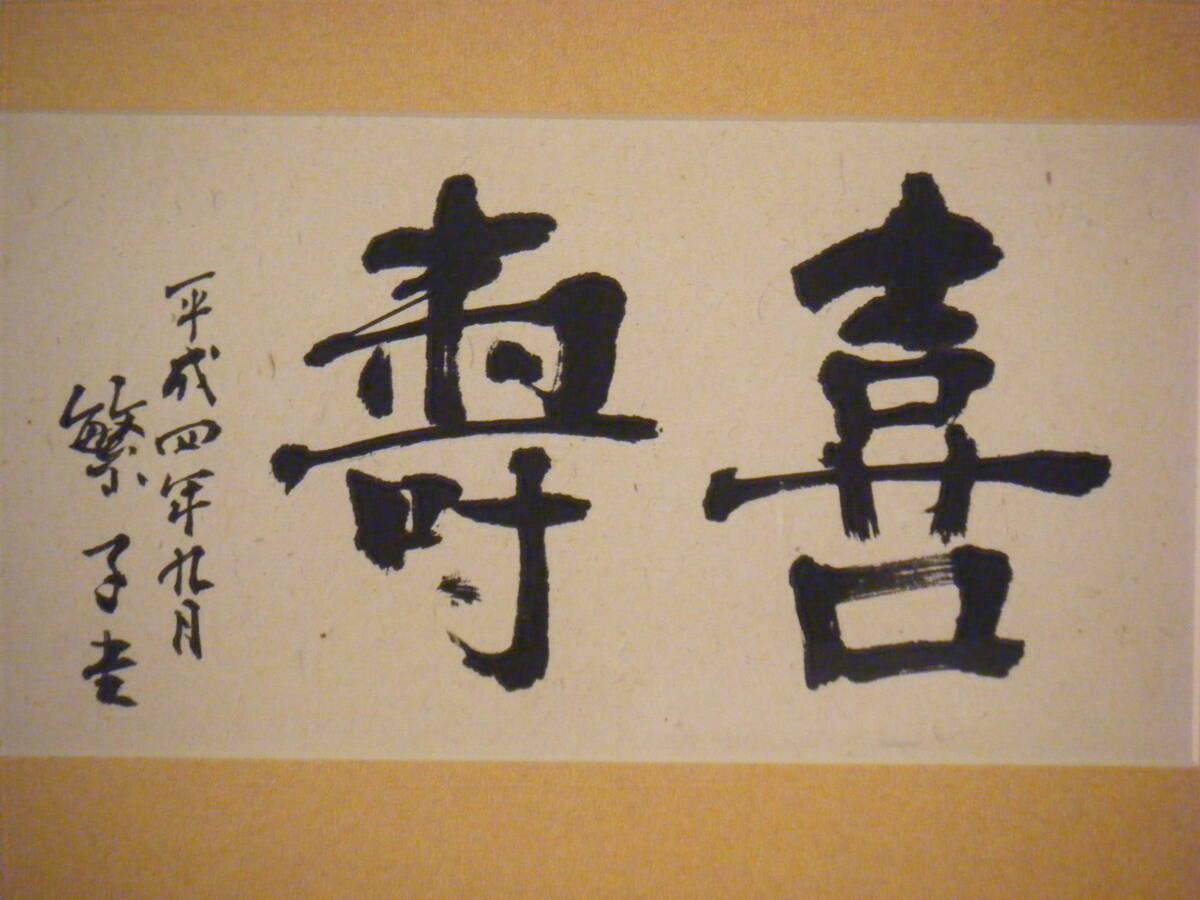 喜壽
平成四年九月
繁子書